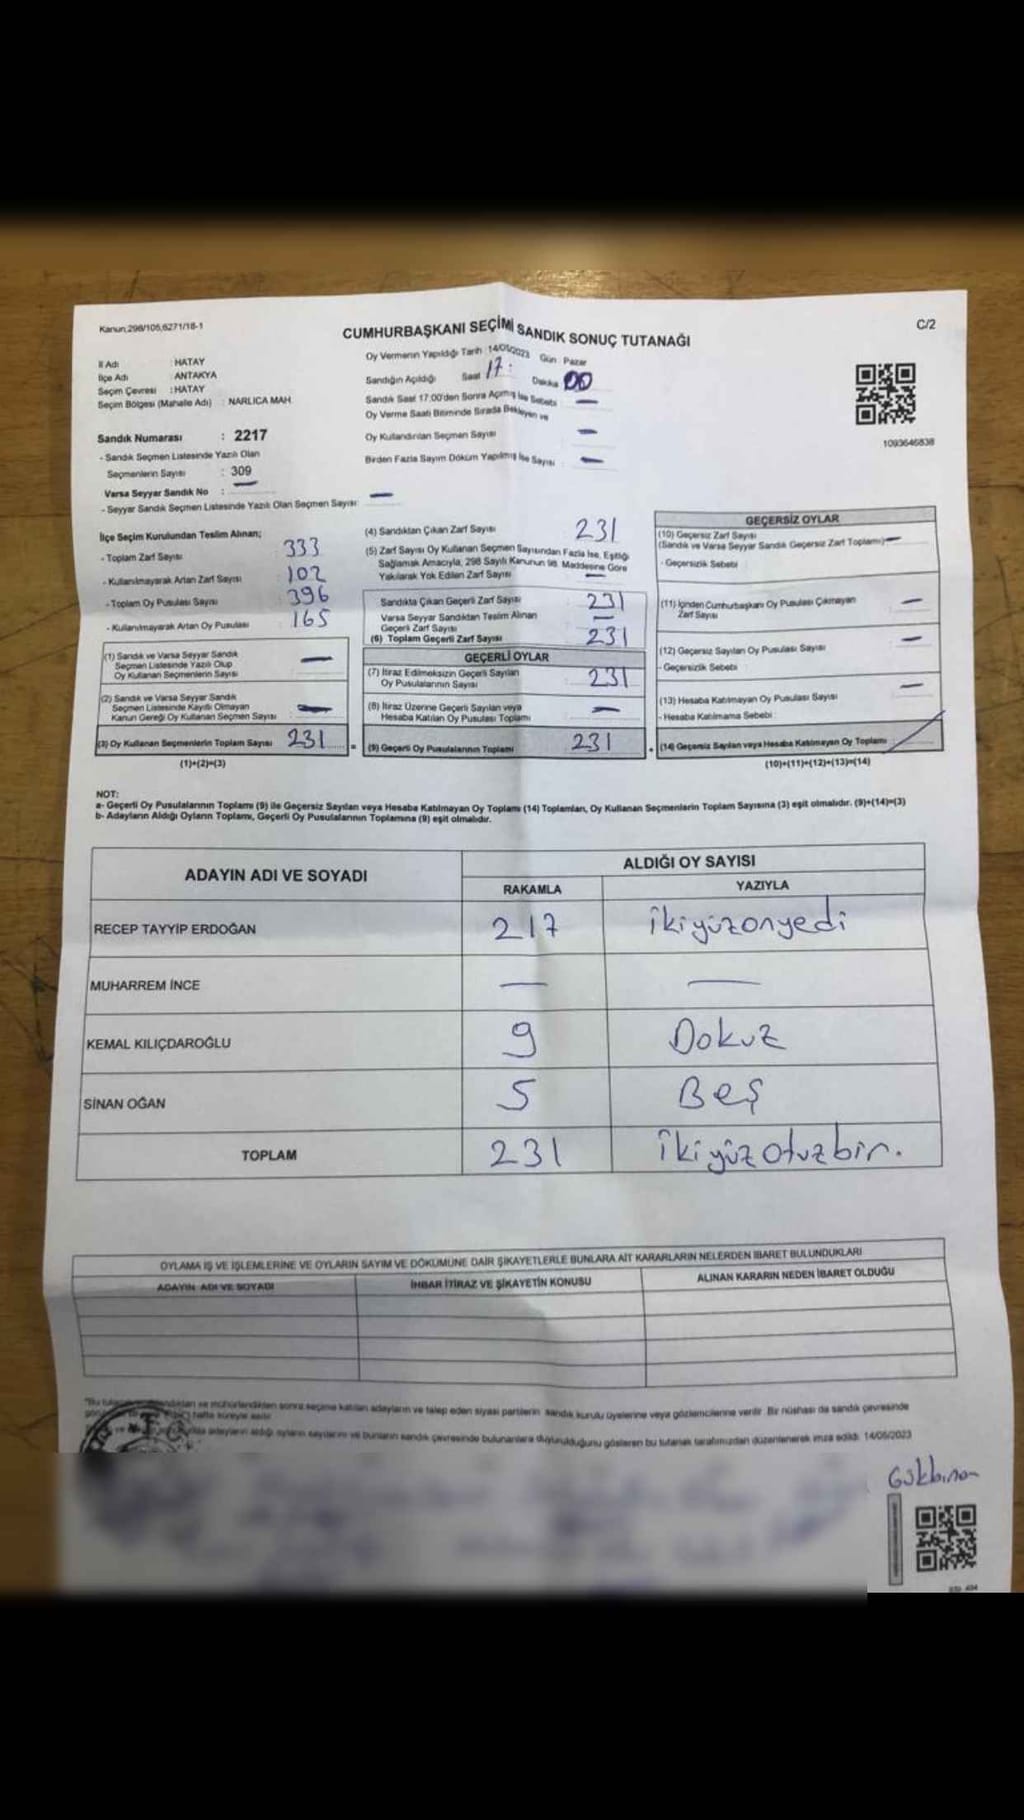 Kanun;298/105,6271/18-1
CUMHURBAŞKANI SEÇİMİ SANDIK SONUÇ TUTANAĞI
C/2
İl Adı : HATAY
İlçe Adı : ANTAKYA
Seçim Çevresi : HATAY
Seçim Bölgesi (Mahalle Adı) : NARLICA MAH.
Sandık Numarası : 2217
- Sandık Seçmen Listesinde Yazılı Olan
Seçmenlerin Sayısı : 309
Varsa Seyyar Sandık No : —
- Seyyar Sandık Seçmen Listesinde Yazılı Olan Seçmen Sayısı : —
Oy Vermenin Yapıldığı Tarih :14/05/2023 Gün Pazar
Sandığın Açıldığı Saat 17: Dakika 00
Sandık Saat 17:00'den Sonra Açılmış İse Sebebi : —
Oy Verme Saati Bitiminde Sırada Bekleyen ve
Oy Kullandırılan Seçmen Sayısı —
Birden Fazla Sayım Döküm Yapılmış İse Sayısı : —
1093646838
İlçe Seçim Kurulundan Teslim Alınan;
- Toplam Zarf Sayısı 333
- Kullanılmayarak Artan Zarf Sayısı 102
- Toplam Oy Pusulası Sayısı 396
- Kullanılmayarak Artan Oy Pusulası 165
(1) Sandık ve Varsa Seyyar Sandık
Seçmen Listesinde Yazılı Olup
Oy Kullanan Seçmenlerin Sayısı —
(2) Sandık ve Varsa Seyyar Sandık
Seçmen Listesinde Kayıtlı Olmayan
Kanun Gereği Oy Kullanan Seçmen Sayısı —
(3) Oy Kullanan Seçmenlerin Toplam Sayısı 231
(1)+(2)=(3)
(4) Sandıktan Çıkan Zarf Sayısı 231
(5) Zarf Sayısı Oy Kullanan Seçmen Sayısından Fazla İse, Eşitliği
Sağlamak Amacıyla, 298 Sayılı Kanunun 98. Maddesine Göre
Yakılarak Yok Edilen Zarf Sayısı —
Sandıkta Çıkan Geçerli Zarf Sayısı 231
Varsa Seyyar Sandıktan Teslim Alınan
Geçerli Zarf Sayısı —
(6) Toplam Geçerli Zarf Sayısı 231
GEÇERLİ OYLAR
(7) İtiraz Edilmeksizin Geçerli Sayılan
Oy Pusulalarının Sayısı 231
(8) İtiraz Üzerine Geçerli Sayılan veya
Hesaba Katılan Oy Pusulası Toplamı —
= (9) Geçerli Oy Pusulalarının Toplamı 231
GEÇERSİZ OYLAR
(10) Geçersiz Zarf Sayısı
(Sandık ve Varsa Seyyar Sandık Geçersiz Zarf Toplamı) —
- Geçersizlik Sebebi
(11) İçinden Cumhurbaşkanı Oy Pusulası Çıkmayan
Zarf Sayısı —
(12) Geçersiz Sayılan Oy Pusulası Sayısı —
- Geçersizlik Sebebi
(13) Hesaba Katılmayan Oy Pusulası Sayısı —
- Hesaba Katılmama Sebebi
+ (14) Geçersiz Sayılan veya Hesaba Katılmayan Oy Toplamı
(10)+(11)+(12)+(13)=(14)
NOT:
a- Geçerli Oy Pusulalarının Toplamı (9) ile Geçersiz Sayılan veya Hesaba Katılmayan Oy Toplamı (14) Toplamları, Oy Kullanan Seçmenlerin Toplam Sayısına (3) eşit olmalıdır. (9)+(14)=(3)
b- Adayların Aldığı Oyların Toplamı, Geçerli Oy Pusulalarının Toplamına (9) eşit olmalıdır.
ADAYIN ADI VE SOYADI
ALDIĞI OY SAYISI
RAKAMLA YAZIYLA
RECEP TAYYİP ERDOĞAN 217 ikiyüzonyedi
MUHARREM İNCE — —
KEMAL KILIÇDAROĞLU 9 Dokuz
SİNAN OĞAN 5 Beş
TOPLAM 231 ikiyüzotuzbir.
OYLAMA İŞ VE İŞLEMLERİNE VE OYLARIN SAYIM VE DÖKÜMÜNE DAİR ŞİKAYETLERLE BUNLARA AİT KARARLARIN NELERDEN İBARET BULUNDUKLARI
ADAYIN ADI VE SOYADI İHBAR İTİRAZ VE ŞİKAYETİN KONUSU ALINAN KARARIN NEDEN İBARET OLDUĞU
ve mühürlendikten sonra seçime katılan adayların ve talep eden siyasi partilerin sandık kurulu üyelerine veya gözlemcilerine verilir. Bir nüshası da sandık çevresinde
hafta süreyle asılır.
adayların aldığı oyların sayılarını ve bunların sandık çevresinde bulunanlara duyurulduğunu gösteren bu tutanak tarafımızdan düzenlenerek imza edildi. 14/05/2023
T.C.